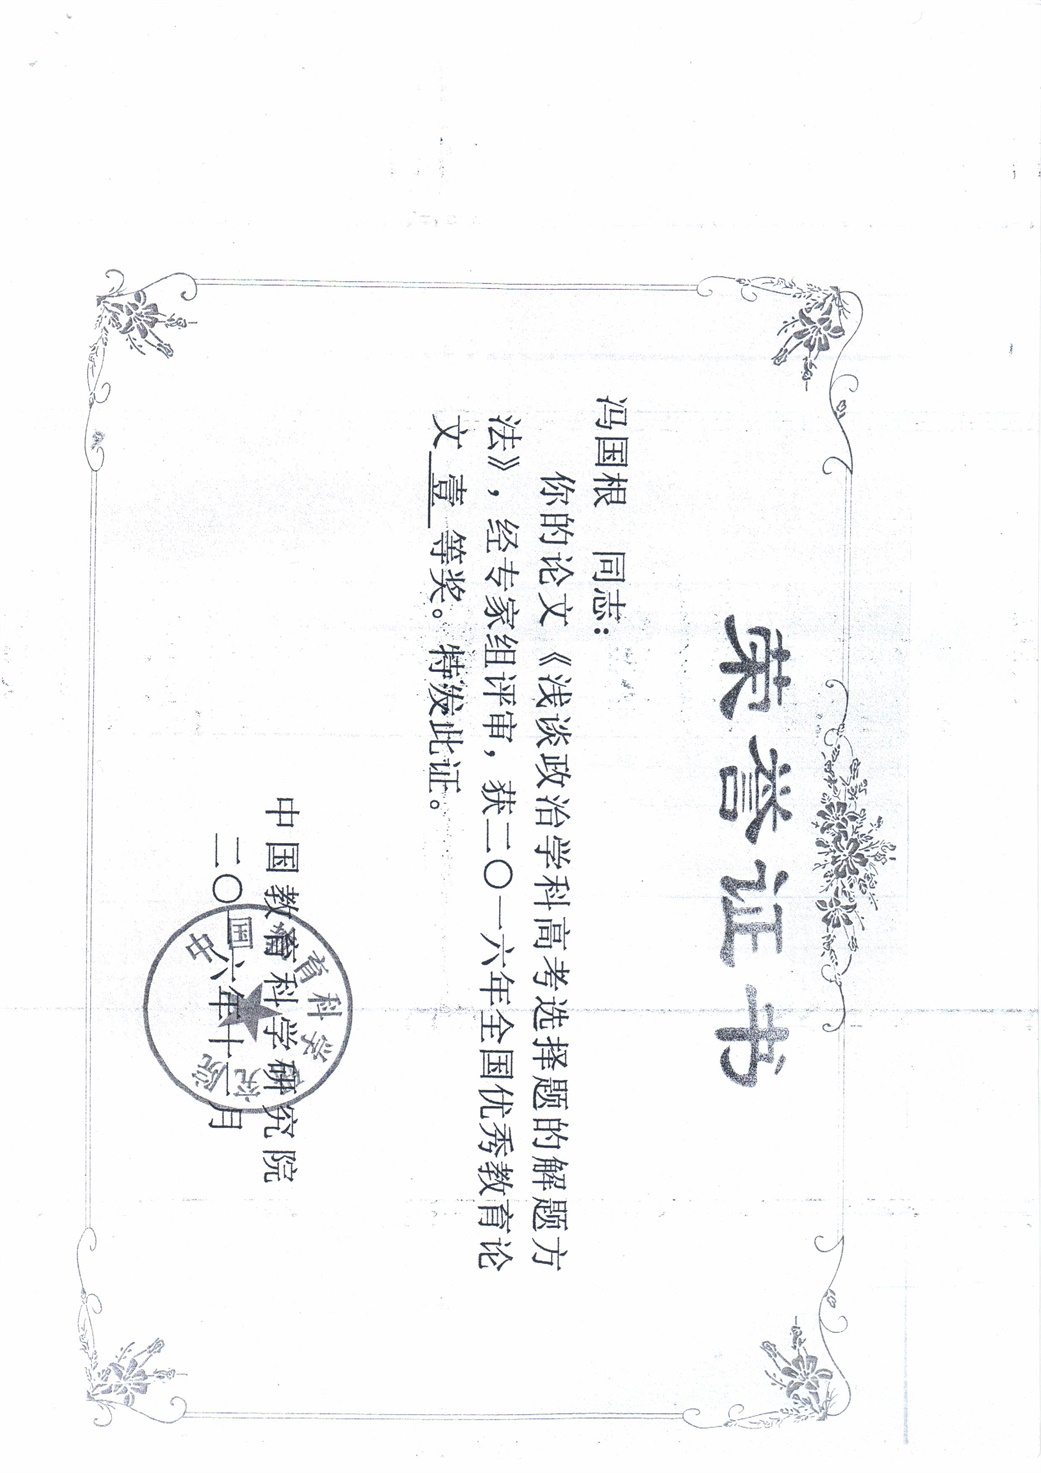 荣誉证书
冯国根 同志：
你的论文《浅谈政治学科高考选择题的解题方
法》，经专家组评审，获二〇一六年全国优秀教育论
文 壹 等奖。特发此证。
中国教育科学研究院
二〇一六年十一月
中国教育科学研究院